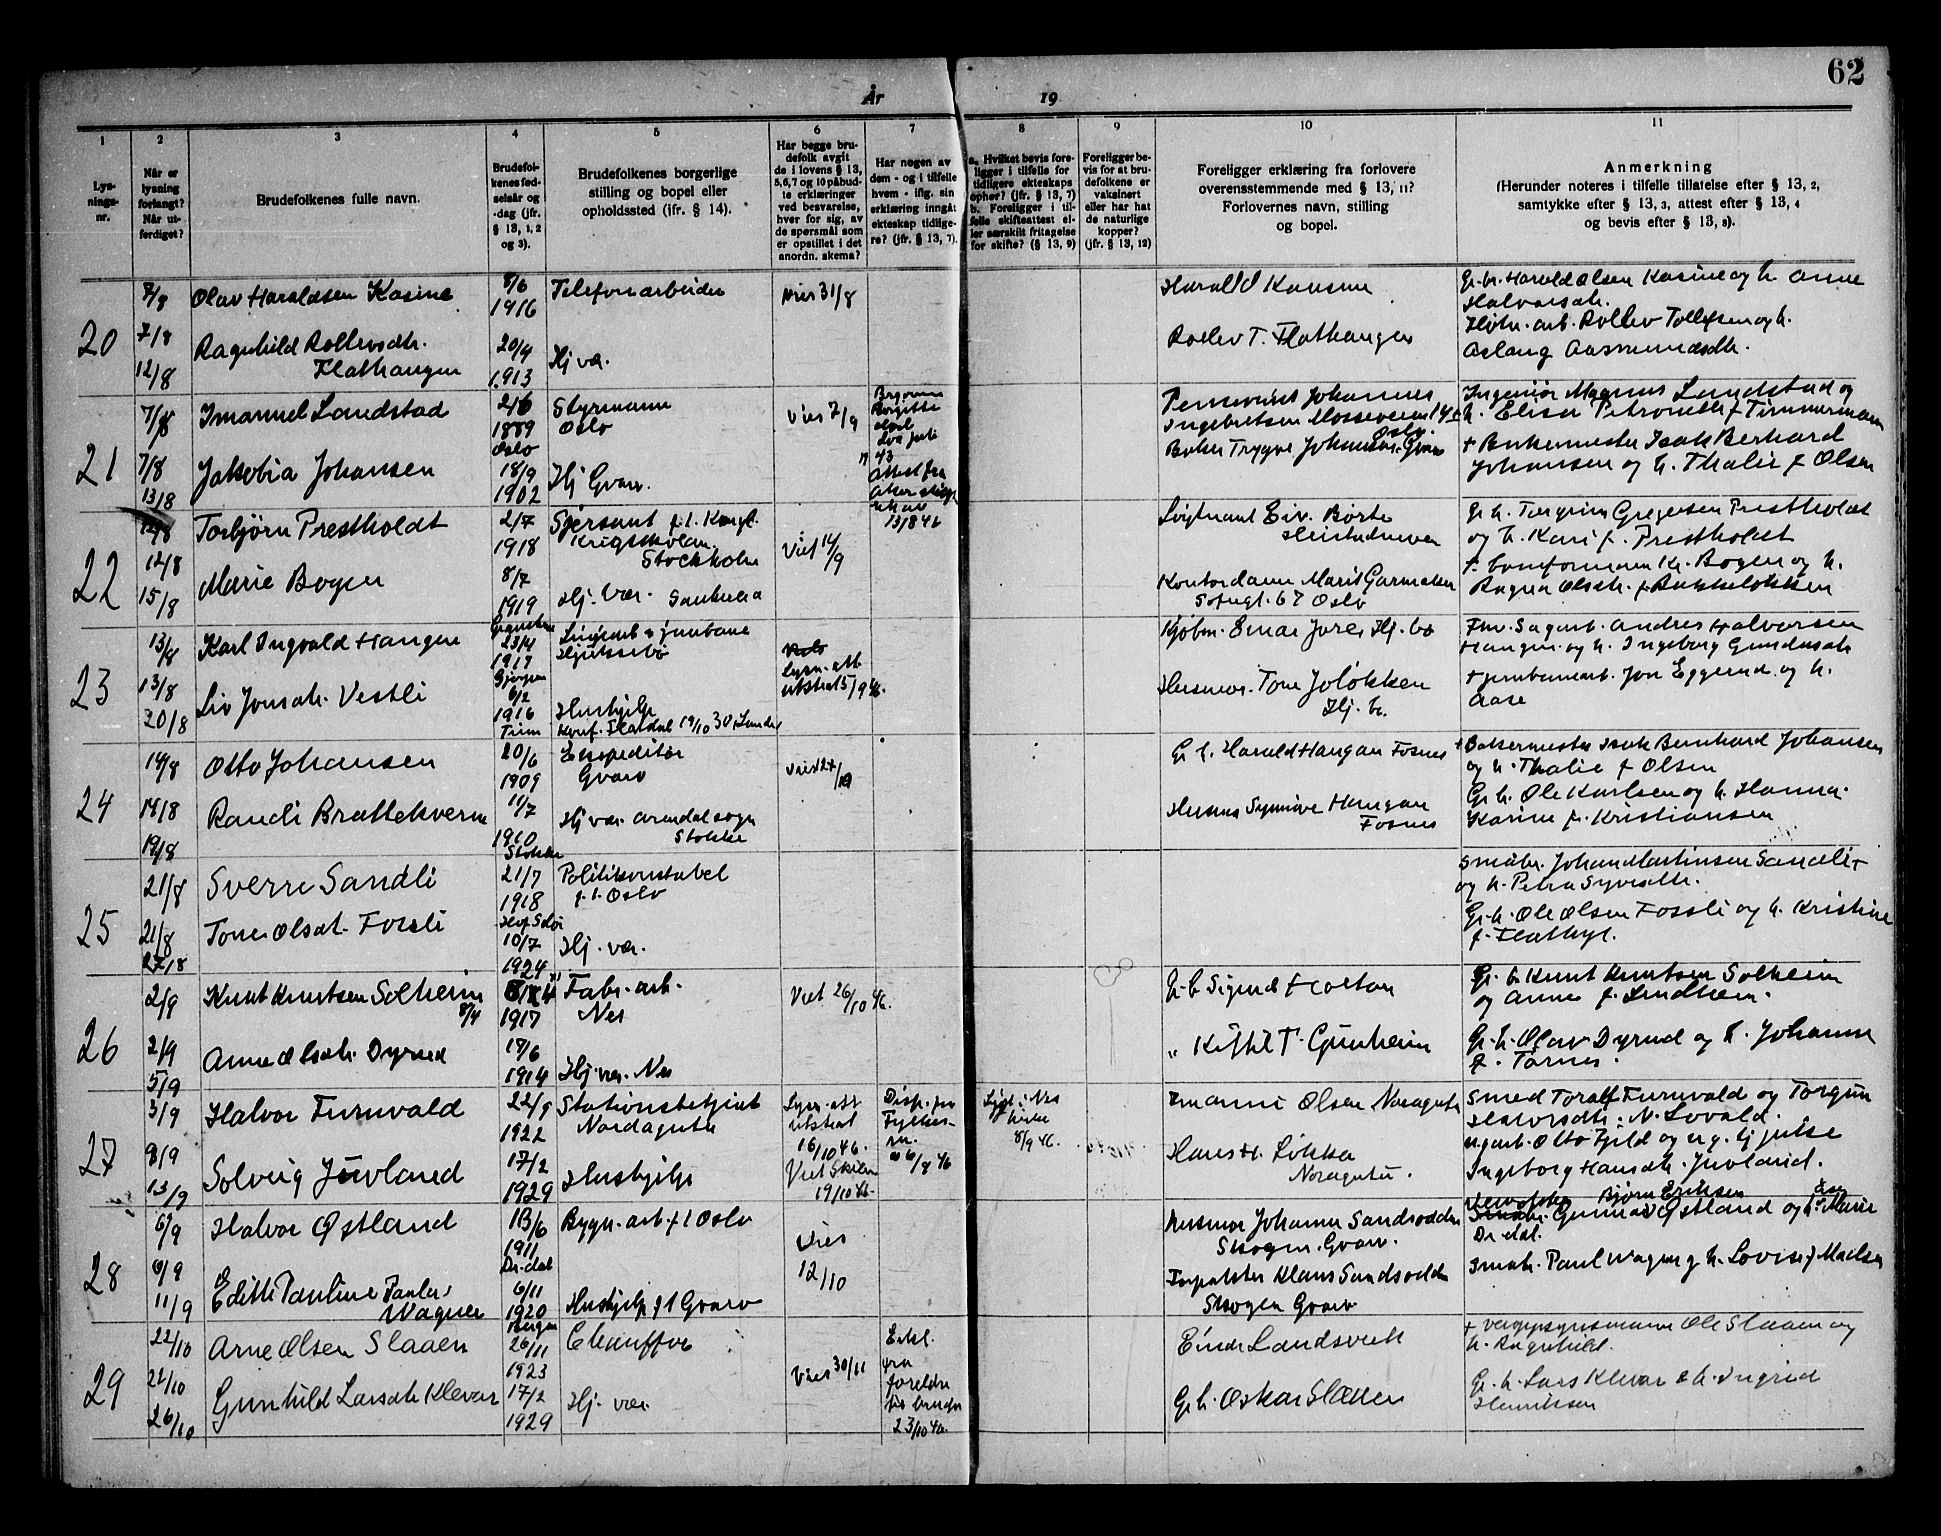 62
År 19
1 2 3 4 5 6 7 8 9 10 11
Lys-
nings-
nr.
Når er
lysning
forlangt?
Når ut-
ferdiget?
Brudefolkenes fulle navn.
Brudefol-
kenes fød-
selsår og
-dag (jfr.
§ 13, 1, 2
og 3).
Brudefolkenes borgerlige
stilling og bopel eller
opholdssted (jfr. § 14).
Har begge bru-
defolk avgit
de i lovens § 13,
5,6,7 og 10 påbud-
te erklæringer
ved besvarelse,
hver for sig, av
de spørsmål som
er opstillet i det
anordn. skema?
Har nogen av
dem - og i tilfelle
hvem - iflg. sin
erklæring inngåt
ekteskap tidlige-
re? (jfr. § 13, 7).
a. Hvilket bevis fore-
ligger i tilfelle for
tidligere ekteskaps
ophør? (jfr. § 13, 7)
b. Foreligger i til-
felle skifteattest el-
ler særskilt fritagelse
for skifte? (§ 13, 9)
Foreligger be-
vis for at bru-
defolkene er
vaksinert
eller har hat
de naturlige
kopper?
(jfr. § 13, 12)
Foreligger erklæring fra forlovere
overensstemmende med § 13, 11?
Forlovernes navn, stilling
og bopel.
Anmerkning
(Herunder noteres i tilfelle tillatelse efter § 13, 2,
samtykke efter § 13, 3, attest efter § 13, 4
og bevis efter § 13, 8).
20
7/8
12/8
Olav Haraldsen Kasine
Ragnhild Rollevsdtr.
Flathangen
8/6
1916
20/4
1913
Telefonarbeider
Hj vær.
Vies 31/8
Harald Kaasine
Rollev T. Flathangen
Gr. br. Harald Olsen Kasine og h. Anne
Halvorsdtr.
arb. Rollev Tollefsen og h.
Aslaug Aasmundsdtr.
21
7/8
7/8
13/8
Imanuel Landstad
Jakobia Johansen
2/6
1889
Oslo
18/9
1902
Styrmann
Oslo
Hj Gvarv.
Vies 7/9
Attest fra
Aker
13/8 46
Pensionist Johannes
Ingebretsen
Oslo.
Baker Trygve Johansen Gvarv
Ingeniør Magnus Landstad og
h. Elisa Petronelle f Timmermann
+ Bakermester Isak Berhard
Johansen og h. Thalie f Olsen
22
12/8
12/8
15/8
Torbjørn Prestholdt
Marie Bogen
2/7
1918
8/7
1919
Sjersant f.t. Kongl.
Krigsskolen
Stockholm
Hj. vær. Sauherad
Viet 14/9
Løitnant Eiv. Børte
Kontordame Marit Garmaker
Sofiegt. 67 Oslo
Gr. h. Torgrim Gregersen Prestholdt
og h. Kari f. Prestholdt
+ Banformann Kr. Bogen og h.
Ragna Olsdtr. f Bakkeløkken
23
13/8
13/8
20/8
Karl Ingvald Haugen
Liv Jonsdtr. Vestli
23/4
1917
Gjerpen
6/2
1916
Tinn
Linjearb v jernbane
Hjuksebø
Hushjelp
Konf. Flatdal 19/10 30 i Sandes
lysn.att
utstedt 5/9 46.
Kjøbm. Einar Jore, Hj. bø
Husmor. Tone Joløkken
Hj. br.
Fhv. Sagarb. Andres Halvorsen
Haugen og h. Ingeborg Gundersdtr
+ jernbanearb. Jon Eggerud og h.
Aase
24
14/8
14/8
19/8
Otto Johansen
Randi Brattekverne
20/6
1909
11/7
1910
Stokke
Ekspeditør
Gvarv
Hj vær. Arendal sogn
Stokke
Gr. h. Harald Haugan Fosnes
Husmor Synnøve Haugan
Fosnes
+ Bakermester Isak Bernhard Johansen
og h. Thalie f Olsen
Gr. h. Ole Karlsen og h. Hanna
Karine f. Kristiansen
25
21/8
21/8
27/8
Sverre Sandli
Tone Olsdt. Fossli
21/7
1918
10/7
1924
Politikonstabel
f.t. Oslo
Hj. vær.
Småbr. Johan Martinsen Sandli
og h. Petra Syversdtr.
Gr. h. Ole Olsen Fossli og h. Kristine
f. Flathyl.
26
2/9
2/9
5/9
Knut Knutsen Solheim
8/4
Anne Olsdtr. Dyrud
1917
18/6
1914
Fabr. arb.
Nes
Hj. vær. Nes
Viet 26/10 46.
Gr. b Sigurd Holtan
" Kittil T. Gunheim
Gr. b Knut Knutsen Solheim
og Anne f. Lindheim.
Gr. h. Olav Dyrud og h. Johanne
f. Tornes.
27
3/9
8/9
13/9
Halvor Furuvald
Solveig Juvland
22/9
1922
17/2
1929
Stationsbetjent
Nordagutu
Hushjelp
Lysn. att
utstedt
16/10 46.
Viet Skien
19/10 46.
Disp. fra
Fylkes-
m.
6/8 46
Lyst i Nes
kirke
8/9 46.
Olsen Noragutu
Hans H. Løkka
Noragutu.
Smed Toralf Furuvald og Torgun
Halvorsdtr. N. Lovald.
Otto Fjeld og
Ingeborg Hansdtr. Juvland.
28
6/9
6/9
11/9
Halvor Østland
Edith Pauline Paula
Wagner
13/6
1911
Dr.dal
6/11
1920
Bergen
Bygn. arb. f.t Oslo
Hushjelp f.t Gvarv
Vies
12/10
Husmor Johanne Sandsodden
Skogen, Gvarv.
Klaus Sandsodden
Skogen Gvarv
Bjørn Eriksen
Gunnar Østland og h. Marie
Dr.dal.
Småbr. Paul Wagner og h. Lovise f Madsen
29
22/10
22/10
26/10
Arne Olsen Slaaen
Gunhild Larsdtr Klevar
26/11
1923
17/2
1929
Chauffør
Hj. vær.
Vies 30/11
Erkl.
fra
foreldre
til bruden
23/10 46.
Einar Landsverk
Gr. b. Oskar Slaaen
+ Veiopsynsmann Ole Slaaen og
h. Ragnhild.
Gr. h. Lars Klevar & h. Ingrid
Henriksen